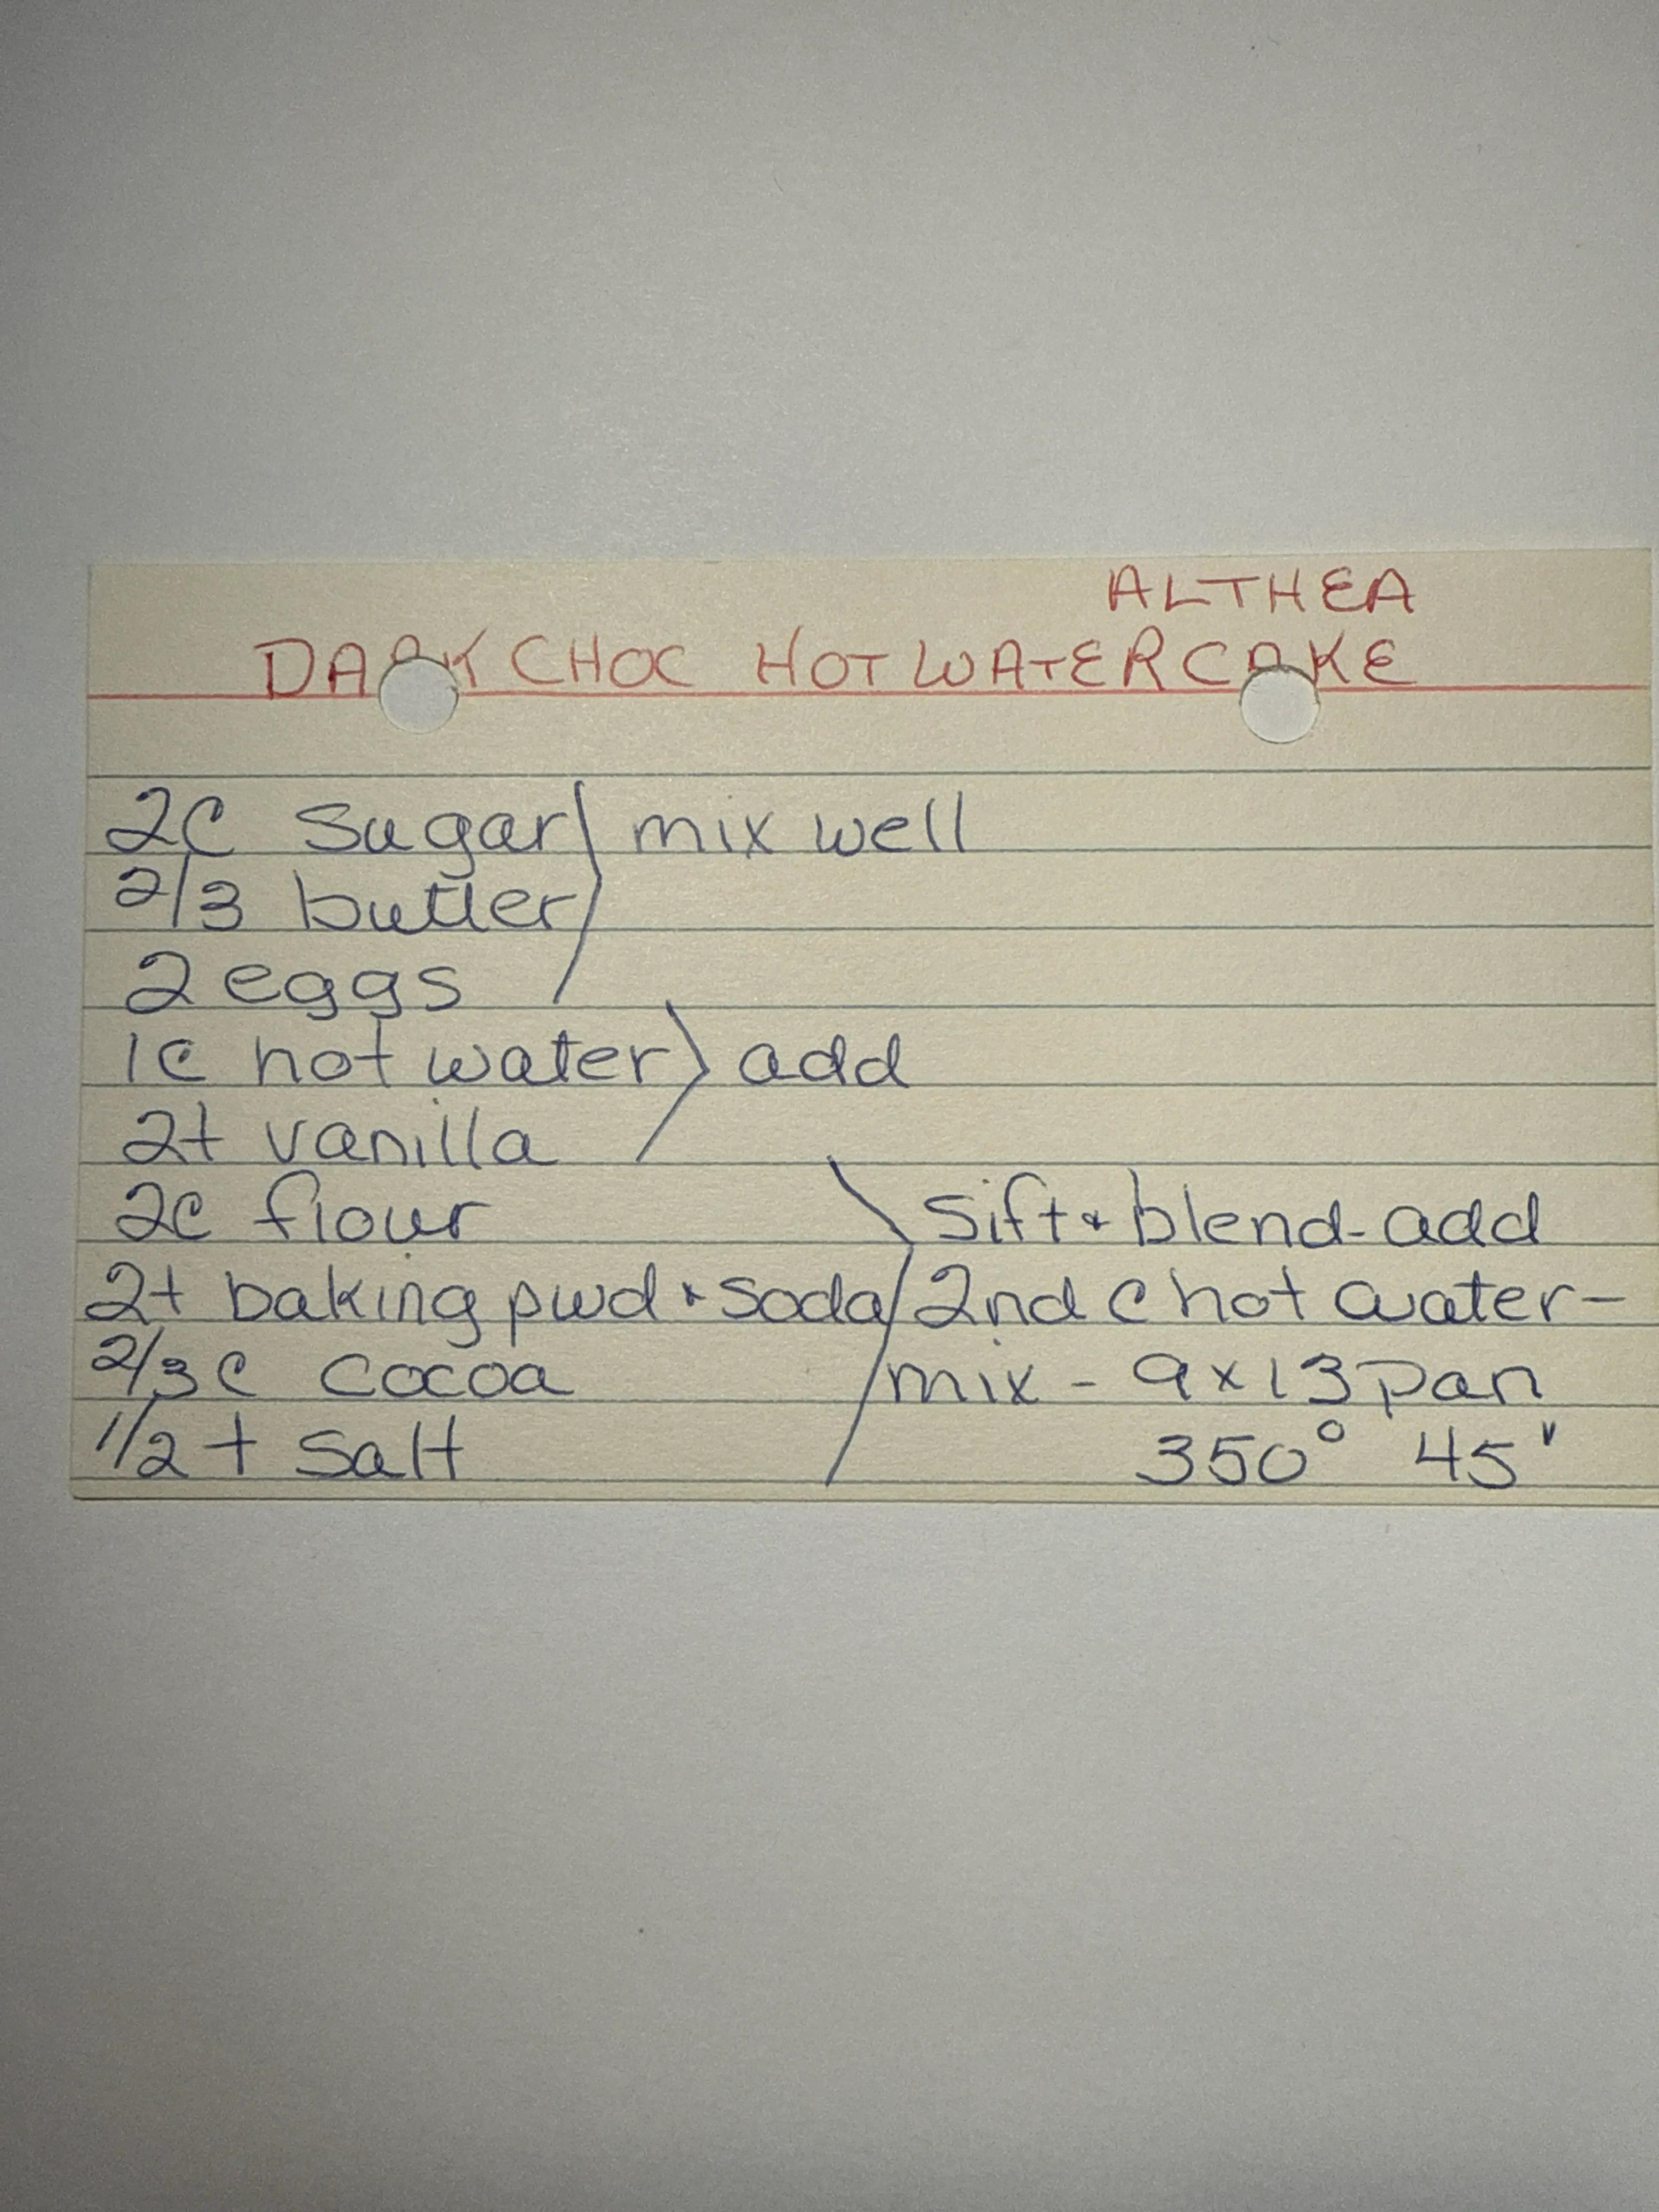 ALTHEA
DARK CHOC HOT WATER CAKE
2C sugar mix well
2/3 butter
2 eggs
1c hot water add
2t vanilla
2c flour sift & blend - add
2t baking pwd & soda 2nd c hot water -
2/3 c cocoa mix - 9x13 pan
1/2 t salt 350° 45"